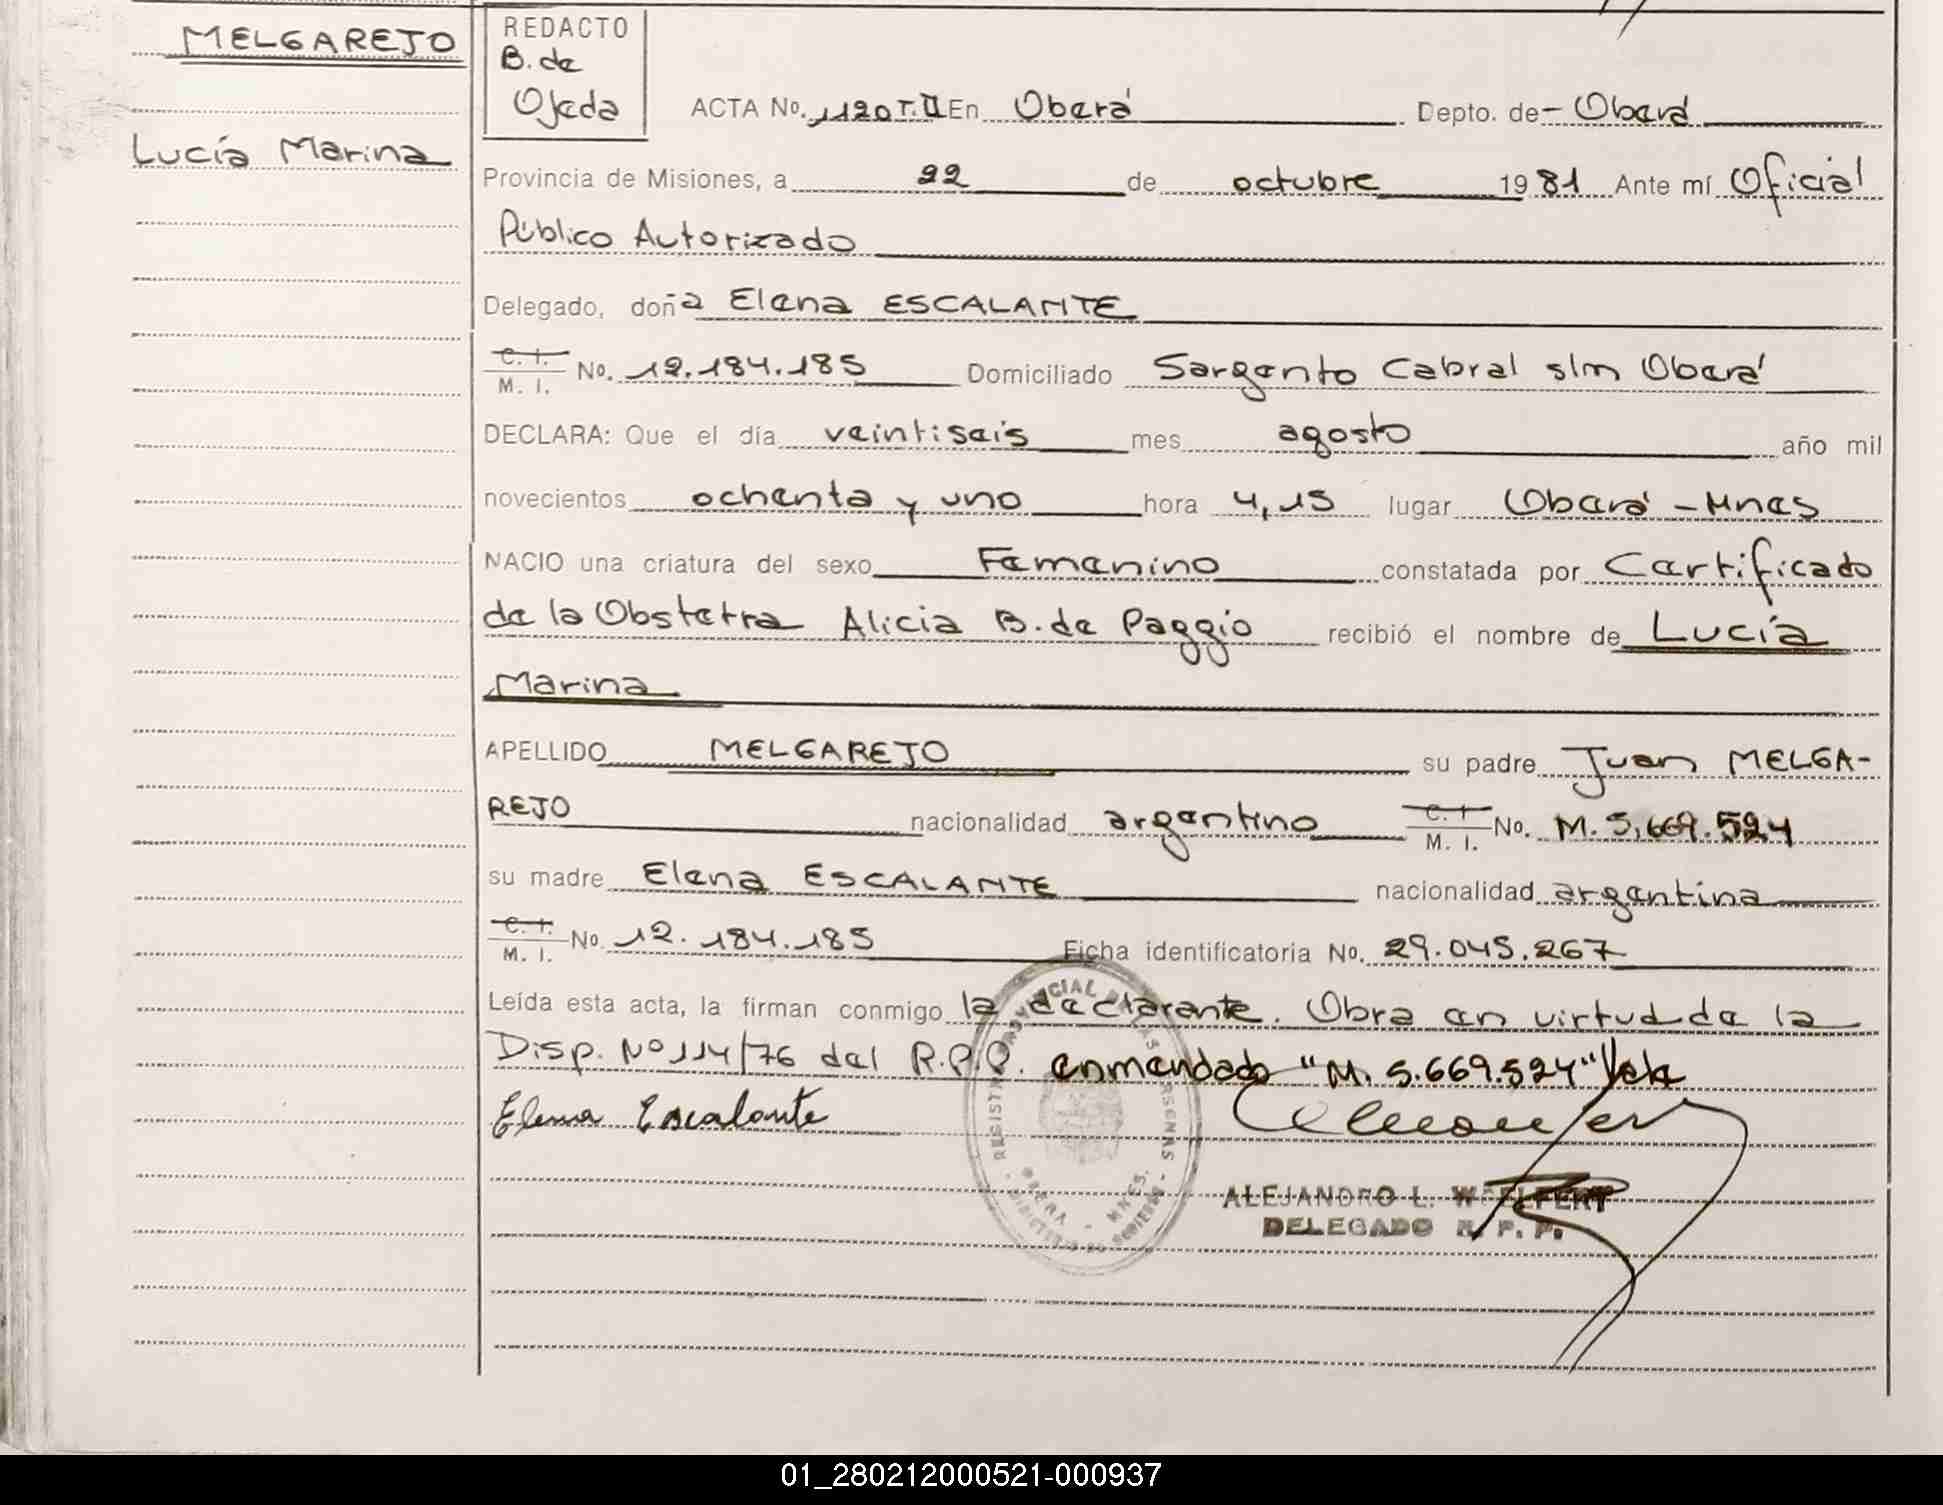 MELGAREJO
Lucía Marina
REDACTO
B. de
Ojeda
ACTA No. 1120 T. II En Oberá Depto. de - Oberá
Provincia de Misiones, a 22 de octubre 1981 Ante mí Oficial
Público Autorizado
Delegado, doña Elena ESCALANTE
C. I. / M. I. No. 12.184.185 Domiciliado Sargento Cabral s/n Oberá
DECLARA: Que el día veintiseis mes agosto año mil
novecientos ochenta y uno hora 4,15 lugar Oberá - Mnes
NACIO una criatura del sexo Femenino constatada por Certificado
de la Obstetra Alicia B. de Paggio recibió el nombre de Lucía
Marina
APELLIDO MELGAREJO su padre Juan MELGA-
REJO nacionalidad argentino C. I. / M. I. No. M. 5.669.524
su madre Elena ESCALANTE nacionalidad argentina
C. I. / M. I. No. 12.184.185 Ficha identificatoria No. 29.045.267
Leída esta acta, la firman conmigo la declarante. Obra en virtud de la
Disp. Nº 114/76 del R.P.P. enmendado "M. 5.669.524" Vale
Elena Escalante
ALEJANDRO L. WOELFERT
DELEGADO R. P. P.
01_280212000521-000937